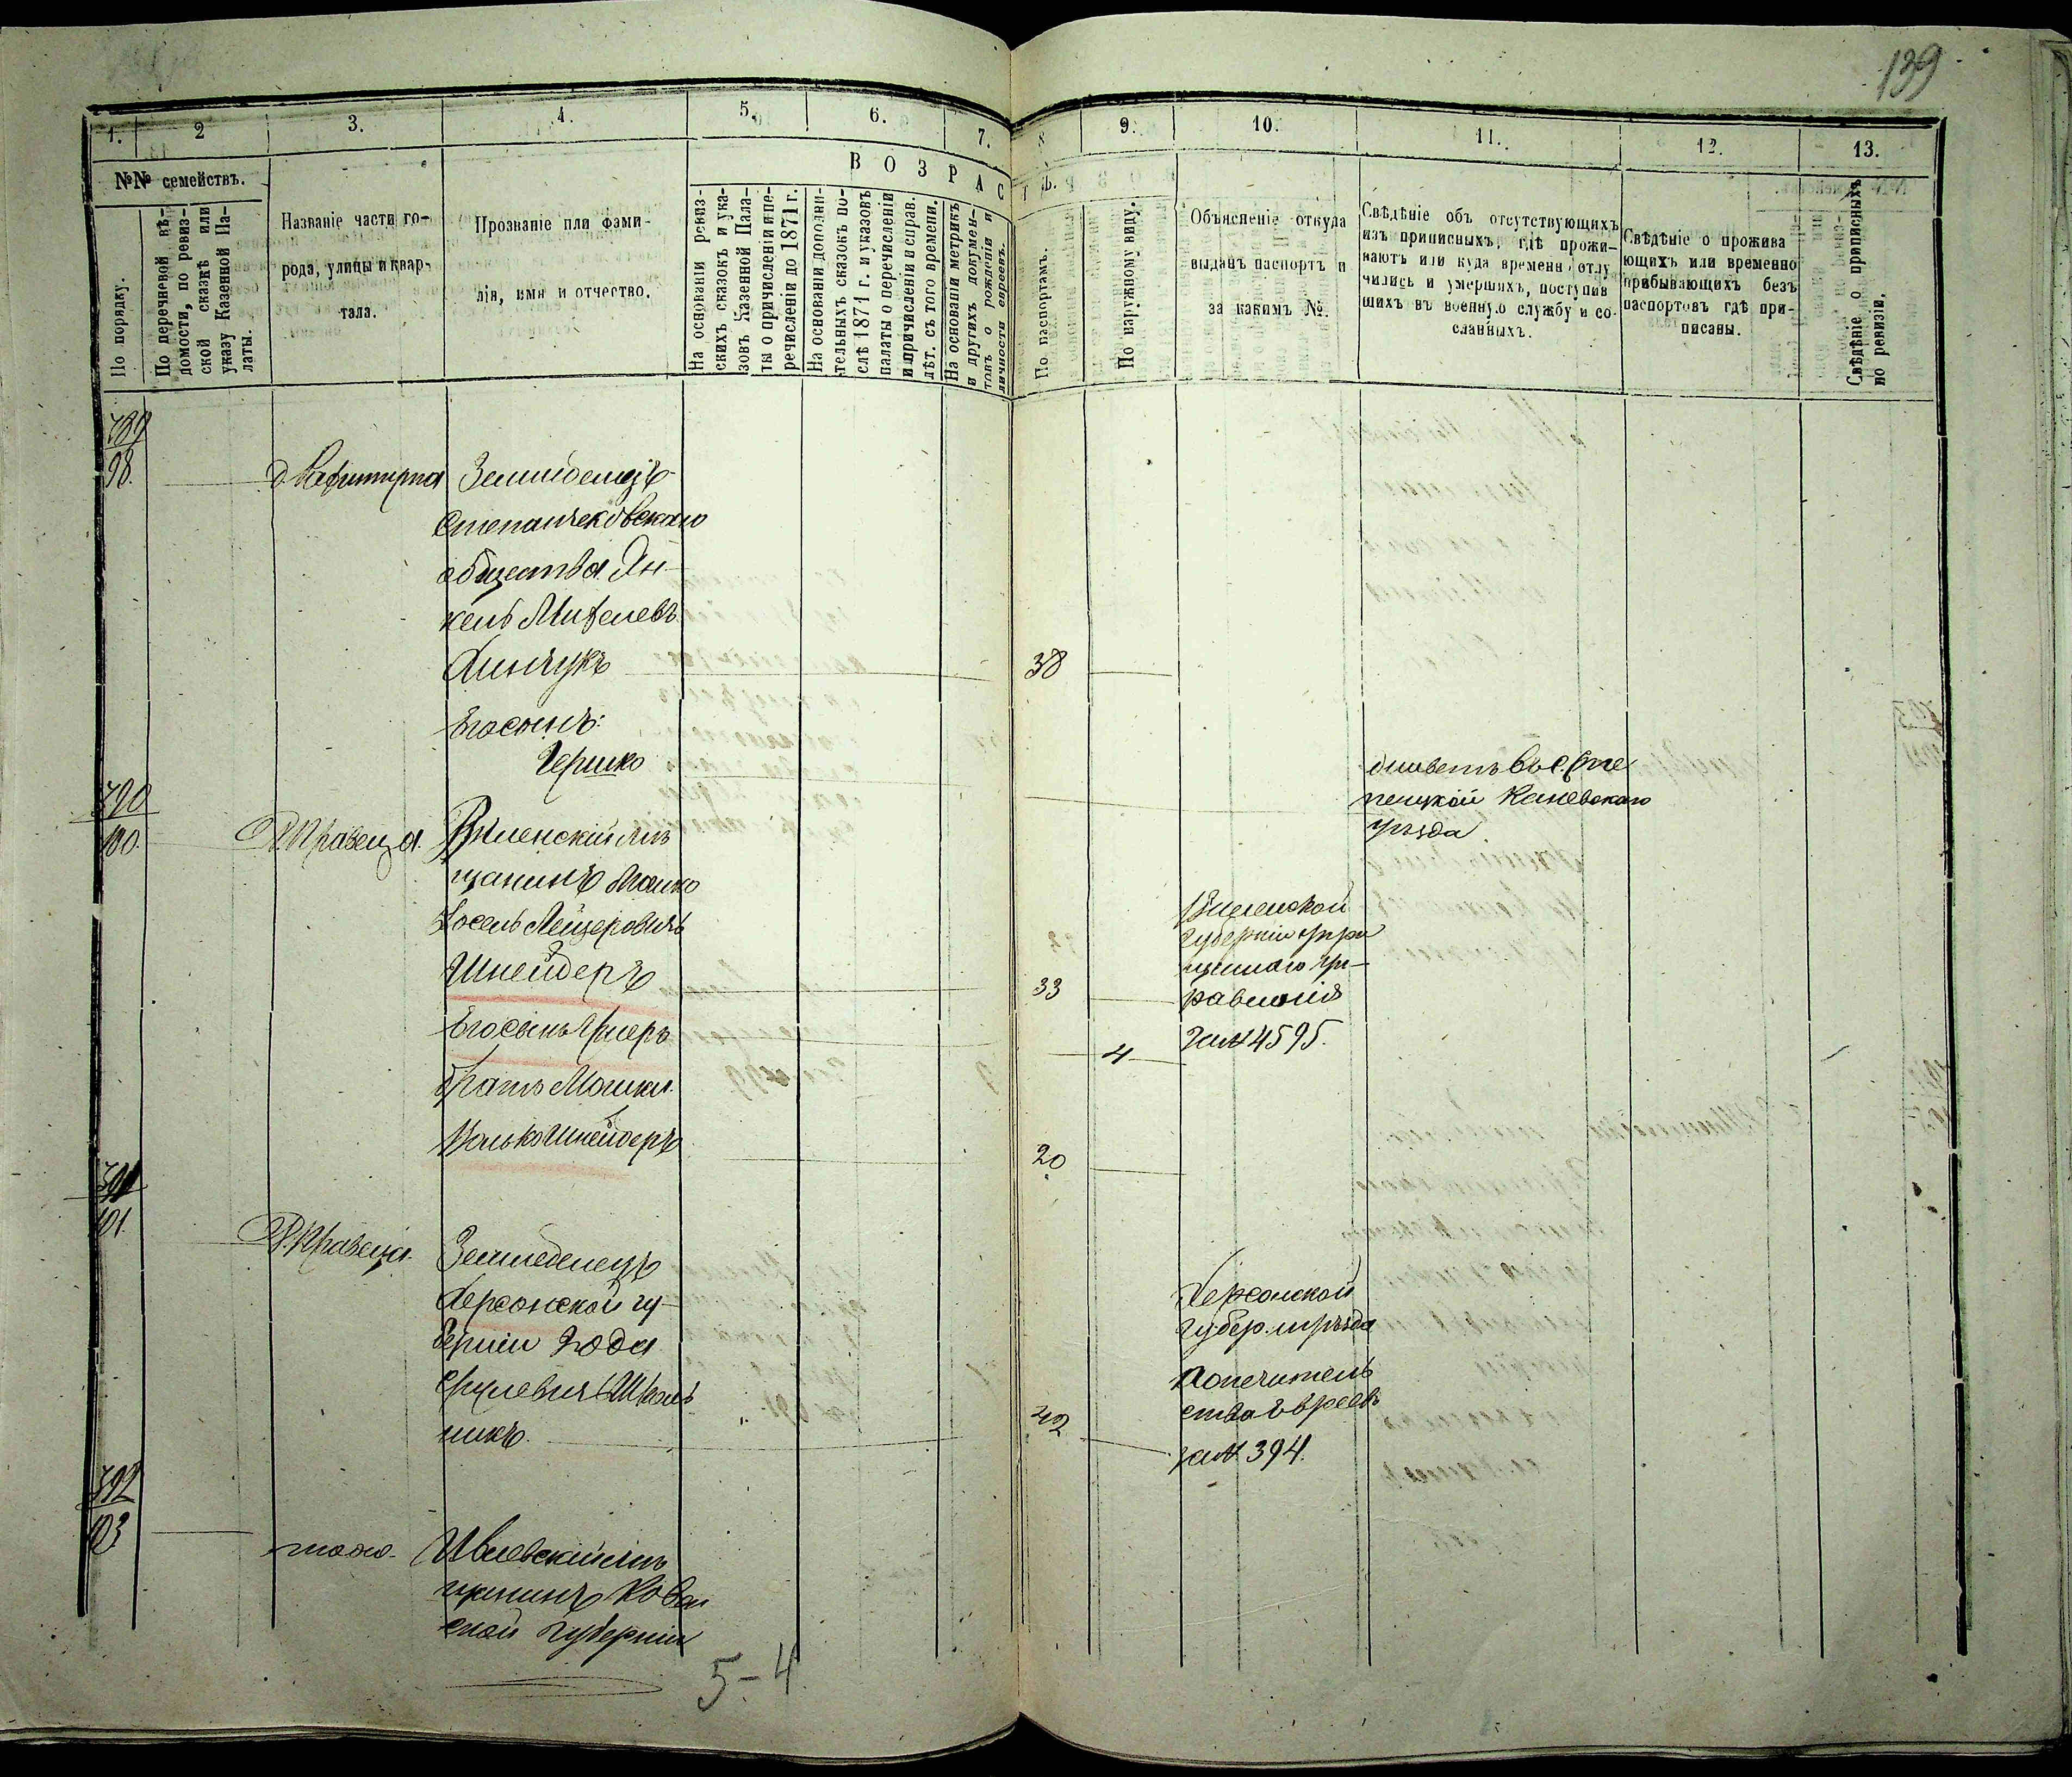 139
1.
2
3.
4.
5.
6.
7.
8
9.
10.
11.
12.
13.
№№ семействъ.
По порядку.
По перечневой вѣ-
домости, по ревиз-
ской сказкѣ или
указу Казенной Па-
латы.
Названіе части го-
рода, улицы и квар-
тала.
Прозваніе или фами-
лія, имя и отчество.
ВОЗРАС
ТЪ.
На основаніи ревиз-
скихъ сказокъ и ука-
зовъ Казенной Пала-
ты о причисленіи и пе-
речисленіи до 1871 г.
На основаніи дополни-
тельныхъ сказокъ по-
слѣ 1871 г. и указовъ
палаты о перечисленіи
и причисленіи и справ.
лѣт. съ того времени.
На основаніи метрикъ
и другихъ докумен-
товъ о рожденіи и
личности евреевъ.
По паспортамъ.
По наружному виду.
Объясненіе откуда
выданъ паспортъ и
за какимъ №.
Свѣдѣніе объ отсутствующихъ
изъ приписныхъ, гдѣ прожи-
ваютъ или куда времени отлу
чились и умершихъ, поступив
шихъ въ военную службу и со-
сланныхъ.
Свѣдѣніе о прожива
ющихъ или временно
прибывающихъ безъ
паспортовъ гдѣ при-
писаны.
Свѣдѣніе о приписныхъ
по ревизіи.
789
98.
Земледелецъ
Степанчековскаго
общества Ян-
кель
Линчукъ
38
Егосынъ:
Гершко
живетъ въ с. Сте
пецкой Каневскаго
уѣзда
790
100.
Д. Кравеца.
Виленскій мѣ
щанинъ Мошко
Іосель Лейзеровичъ
Шнейдеръ
33
Виленской
губерніи
равленія
За № 4595.
Егосынъ
4
братъ Мошка
Волько Шнейдеръ
20
791
101.
Д. Кравеца.
Земледелецъ
Херсонской гу-
берніи Іода
Срулевичъ Школь
никъ.
42
Херсонской
губер. и уѣзда
Попечитель
ства Евреевъ
за № 394.
792
103
тоже.
мѣ
щанинъ Ковен
ской губерніи
5-4